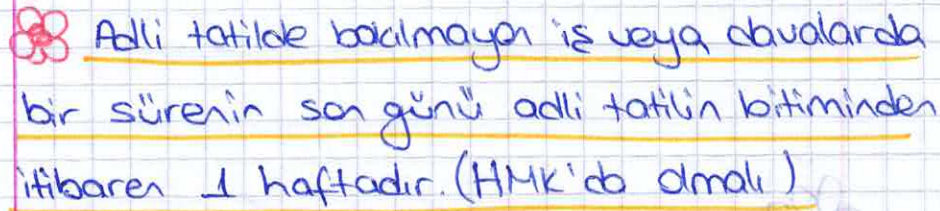 Adli tatilde bakılmayan iş veya davalarda
bir sürenin son günü adli tatilin bitiminden
itibaren 1 haftadır. (HMK'da olmalı)